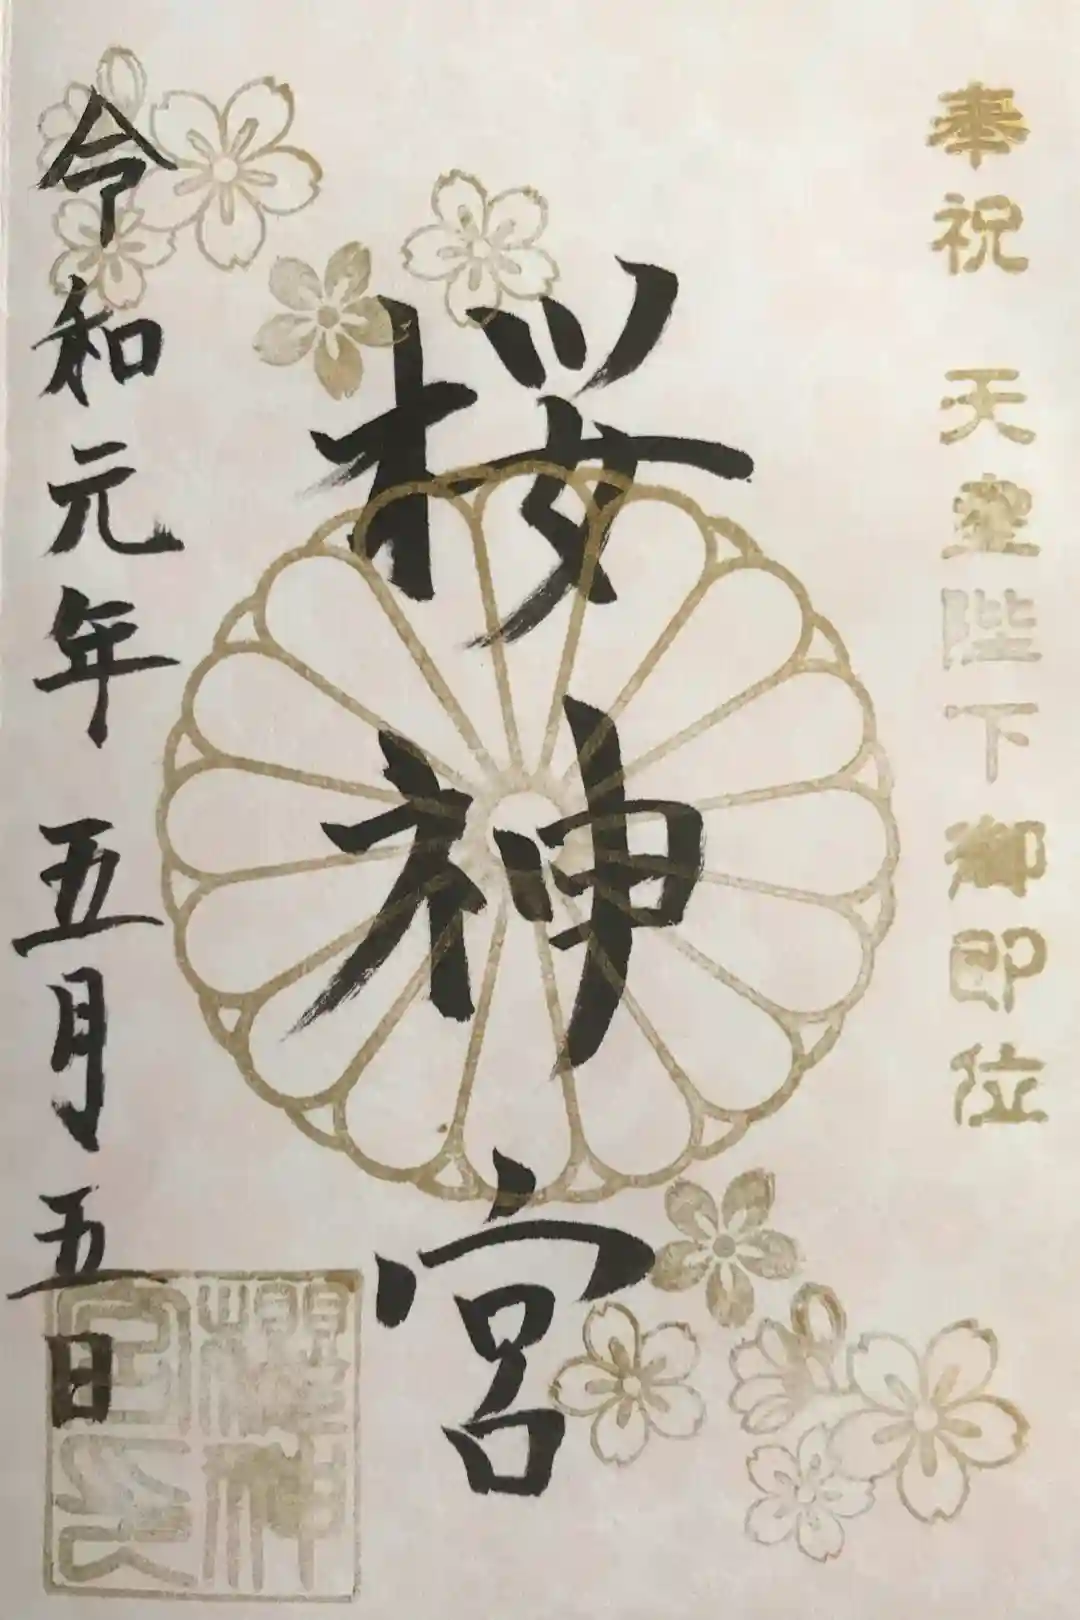 奉祝 天皇陛下御即位
桜神宮
令和元年 五月五日
櫻神
宮印